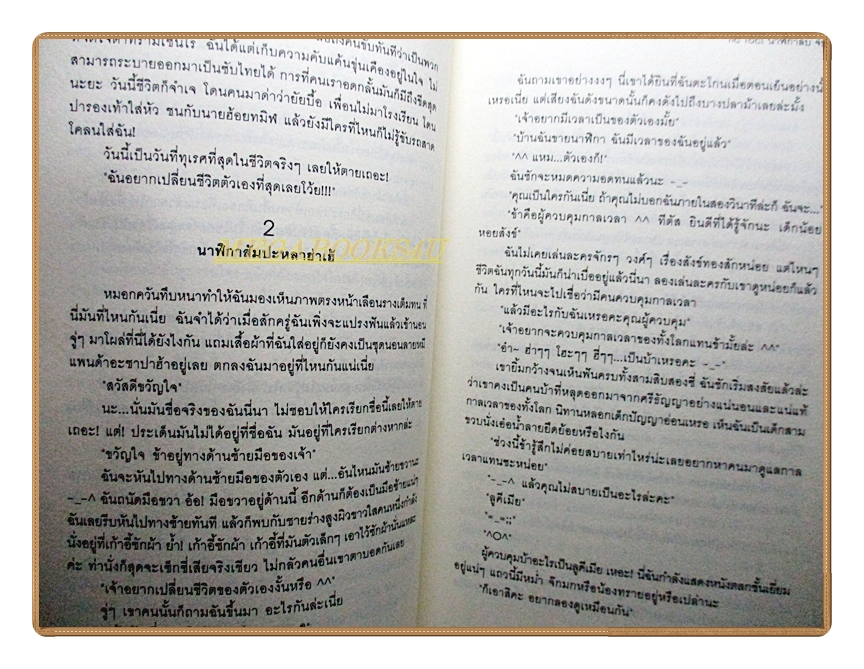 สามารถระบายออกมาเป็นซับไทยได้ การที่คนเราอดกลั้นมันก็มีถึงขีดสุด
นะยะ วันนี้ชีวิตก็จำเจ โดนคนมาด่าว่ายัยบื้อ เพื่อนไม่มาโรงเรียน โดน
ปารองเท้าใส่หัว ชนกับนายฮ้อยทมิฬ แล้วยังมีใครที่ไหนก็ไม่รู้ขับรถสาด
โคลนใส่ฉัน!
วันนี้เป็นวันที่ทุเรศที่สุดในชีวิตจริงๆ เลยให้ตายเถอะ!
"ฉันอยากเปลี่ยนชีวิตตัวเองที่สุดเลยโว้ย!!!"
2
นาฬิกาสัมปะหลาฮ่าเฮ้
MEGABOOKS4U
หมอกควันทึบหนาทำให้ฉันมองเห็นภาพตรงหน้าเลือนรางเต็มทน ที่
นี่มันที่ไหนกันเนี่ย ฉันจำได้ว่าเมื่อสักครู่ฉันเพิ่งจะแปรงฟันแล้วเข้านอน
จู่ๆ มาโผล่ที่นี่ได้ยังไงกัน แถมเสื้อผ้าที่ฉันใส่อยู่ก็ยังคงเป็นชุดนอนลายหมี
แพนด้าอะชาปาฮ้าอยู่เลย ตกลงฉันมาอยู่ที่ไหนกันแน่เนี่ย
"สวัสดีขวัญใจ"
นะ...นั่นมันชื่อจริงของฉันนี่นา ไม่ชอบให้ใครเรียกชื่อนี้เลยให้ตาย
เถอะ! แต่! ประเด็นมันไม่ได้อยู่ที่ชื่อฉัน มันอยู่ที่ใครเรียกต่างหากล่ะ
"ขวัญใจ ข้าอยู่ทางด้านซ้ายมือของเจ้า"
ฉันจะหันไปทางด้านซ้ายมือของตัวเอง แต่...อันไหนมันซ้ายขวานะ
-_-^ ฉันถนัดมือขวา อ้อ! มือขวาอยู่ด้านนี้ อีกด้านก็ต้องเป็นมือซ้ายแน่ๆ
ฉันเลยรีบหันไปทางซ้ายทันที แล้วก็พบกับชายร่างสูงผิวขาวใสคนหนึ่งกำลัง
นั่งอยู่ที่เก้าอี้ซักผ้า ย้ำ! เก้าอี้ซักผ้า เก้าอี้ที่มันตัวเล็กๆ เอาไว้ซักผ้านั่นแหละ
ค่ะ ท่านั่งก็สุดจะเซ็กซี่เสียจริงเชียว ไม่กลัวคนอื่นเขาตาบอดกันเลย
"เจ้าอยากเปลี่ยนชีวิตของตัวเองงั้นหรือ ^^"
จู่ๆ เขาคนนั้นก็ถามฉันขึ้นมา อะไรกันล่ะเนี่ย
ฉันถามเขาอย่างงงๆ นี่เขาได้ยินที่ฉันตะโกนเมื่อตอนเย็นอย่างนั้น
เหรอเนี่ย แต่เสียงฉันดังขนาดนั้นก็คงดังไปถึงบางปลาม้าเลยล่ะมั้ง
"เจ้าอยากมีเวลาเป็นของตัวเองมั้ย"
"บ้านฉันขายนาฬิกา ฉันมีเวลาของฉันอยู่แล้ว"
"^^ แหม...ตัวเองก็!"
ฉันชักจะหมดความอดทนแล้วนะ -_-
"คุณเป็นใครกันเนี่ย ถ้าคุณไม่บอกฉันภายในสองวินาทีล่ะก็ ฉันจะ..."
"ข้าคือผู้ควบคุมกาลเวลา ^^ ทีตัส ยินดีที่ได้รู้จักนะ เด็กน้อย
หอยสังข์"
ฉันไม่เคยเล่นละครจักรๆ วงศ์ๆ เรื่องสังข์ทองสักหน่อย แต่ไหนๆ
ชีวิตฉันทุกวันนี้มันก็น่าเบื่ออยู่แล้วนี่นา ลองเล่นละครกับเขาดูหน่อยก็แล้ว
กัน ใครที่ไหนจะไปเชื่อว่ามีคนควบคุมกาลเวลา
"แล้วมีอะไรกับฉันเหรอคะคุณผู้ควบคุม"
"เจ้าอยากจะควบคุมกาลเวลาของทั้งโลกแทนข้ามั้ยล่ะ ^^"
"อ๋า~ ฮ่าๆๆ โฮะๆๆ ฮี่ๆๆ...เป็นบ้าเหรอคะ -_-"
เขายิ้มกว้างจนเห็นฟันครบทั้งสามสิบสองซี่ ฉันชักเริ่มสงสัยแล้วล่ะ
ว่าเขาคงเป็นคนบ้าที่หลุดออกมาจากศรีธัญญาอย่างแน่นอนและแน่แท้
กาลเวลาของทั้งโลก นิทานหลอกเด็กปัญญาอ่อนเหรอ เห็นฉันเป็นเด็กสาม
ขวบนั่งเอ๋อน้ำลายยืดย้อยหรือไงกัน
"ช่วงนี้ข้ารู้สึกไม่ค่อยสบายเท่าไหร่น่ะเลยอยากหาคนมาดูแลกาล
เวลาแทนซะหน่อย"
"-_-^ แล้วคุณไม่สบายเป็นอะไรล่ะคะ"
"ลูคีเมีย"
"=_=;;"
"^O^"
ผู้ควบคุมบ้าอะไรเป็นลูคีเมีย เหอะ! นี่ฉันกำลังแสดงหนังตลกชั้นเยี่ยม
อยู่แน่ๆ แถวนี้มีหม่ำ จ๊กมกหรือน้องทรายอยู่หรือเปล่านะ
"ก็เอาสิคะ อยากลองดูเหมือนกัน"